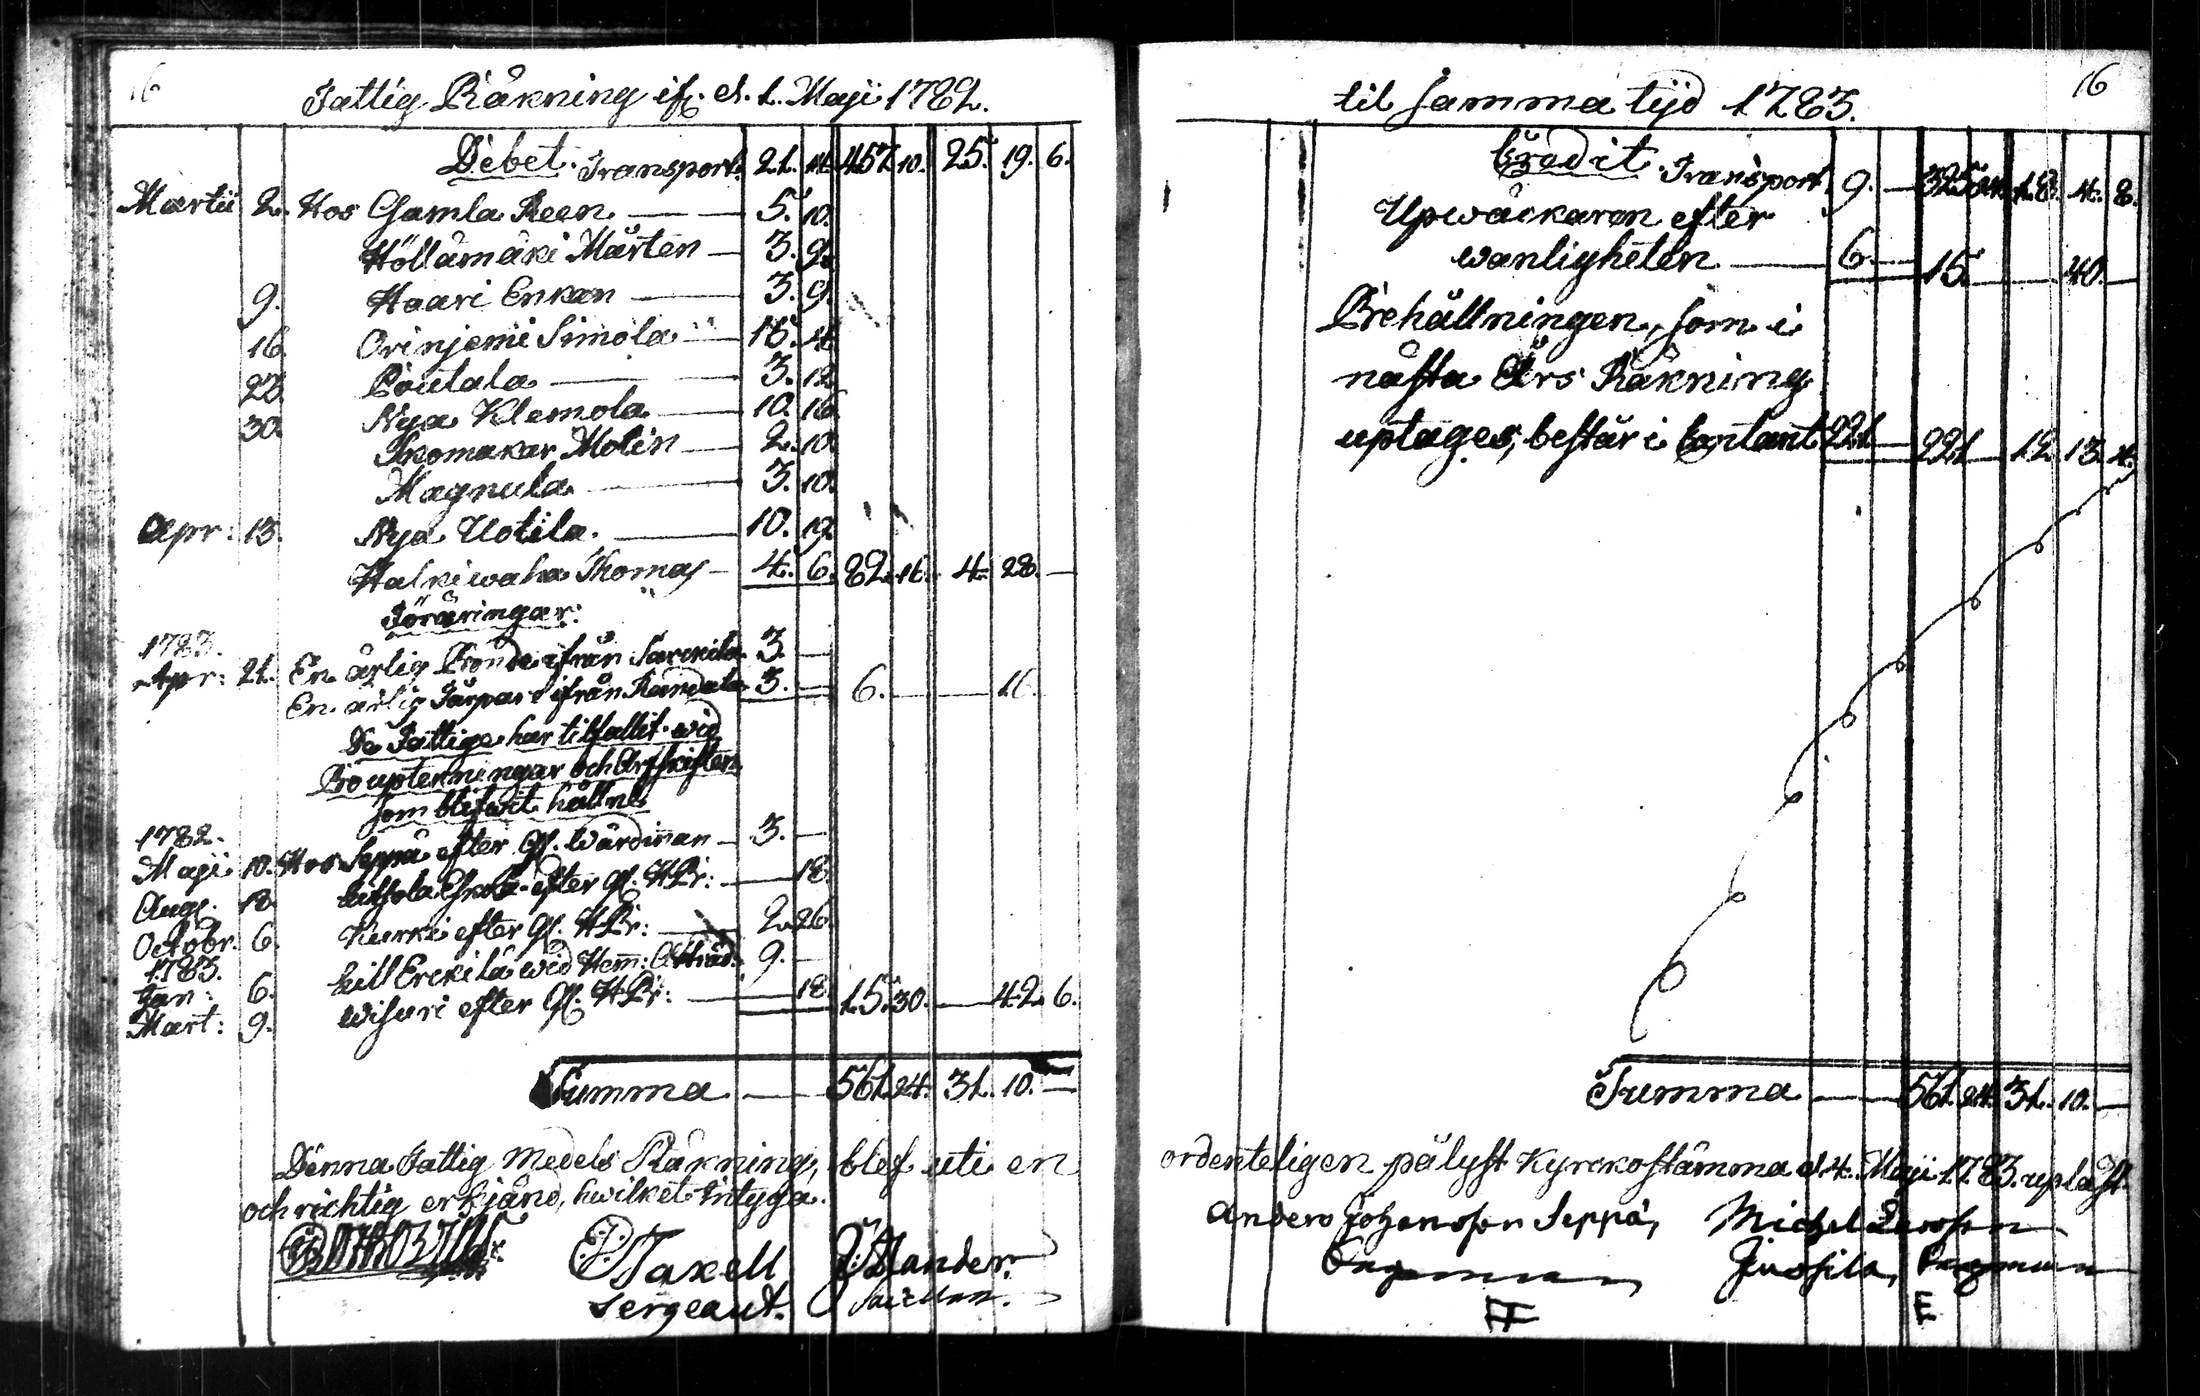 16
Fattig Räkning if. d. 1. Maji 1782.
Debet. Transport. 21. 14. 457. 10. 25. 19. 6.
Martii 2. Hos Gamla Reen — 5. 10.
Höllämäki Mårten — 3. 9.
9. Haari Enkan — 3. 9.
16. Orinjemi Simola — 15. 4.
Poutala — 3. 12.
30. Nya Klemola — 10. 16.
Skomakar Molin — 2. 10.
Magnula — 3. 10.
Apr: 13. Nya Uotila. — 10. 19.
Halkiwaha Thomas — 4. 6. 82. 16. 4. 28. —
Föräringar:
1783.
Apr: 21. En ärlig Bonde ifrån 3. —
En ärlig ifrån 3. — 6. — — 16.
De Fattige har tilfallit wid
Bo upteckningar och Arfskiften
som blifwit hållne
1782.
Maji 10. Hos Seppä efter Gl. Wärdinnan — 3. —
Aug. 18. efter Gl. — 18.
Octobr. 6. Kurki efter Gl. — 2. 26.
1783.
Jan: 6. Lill Erckilä wid Hem: 9. —
Mart: 9. Wisuri efter Gl. — 18. 15. 30. — 42. 6.
Summa — 561. 24. 31. 10. —
Denna Fattig Medels Räkning, blef uti en
och richtig erkjänd, hwilket intyga.
Taxell
Sergeant.
16
til samma tijd 1783.
Credit. Transport. 9. — 325. 24. 18. 4. 8.
Upwäckaren efter
wanligheten — 6. — 15. — — 40. —
Behållningen, som i
nästa Års Räkning
uptages, består i Contant 221. — 221. — 12. 13. 4.
Summa — 561. 24. 31. 10. —
ordenteligen pålyst Kyrckostämma d. 4. Maji 1783. upläst
Anders Johansson Seppä, Michel
Juosila,
E